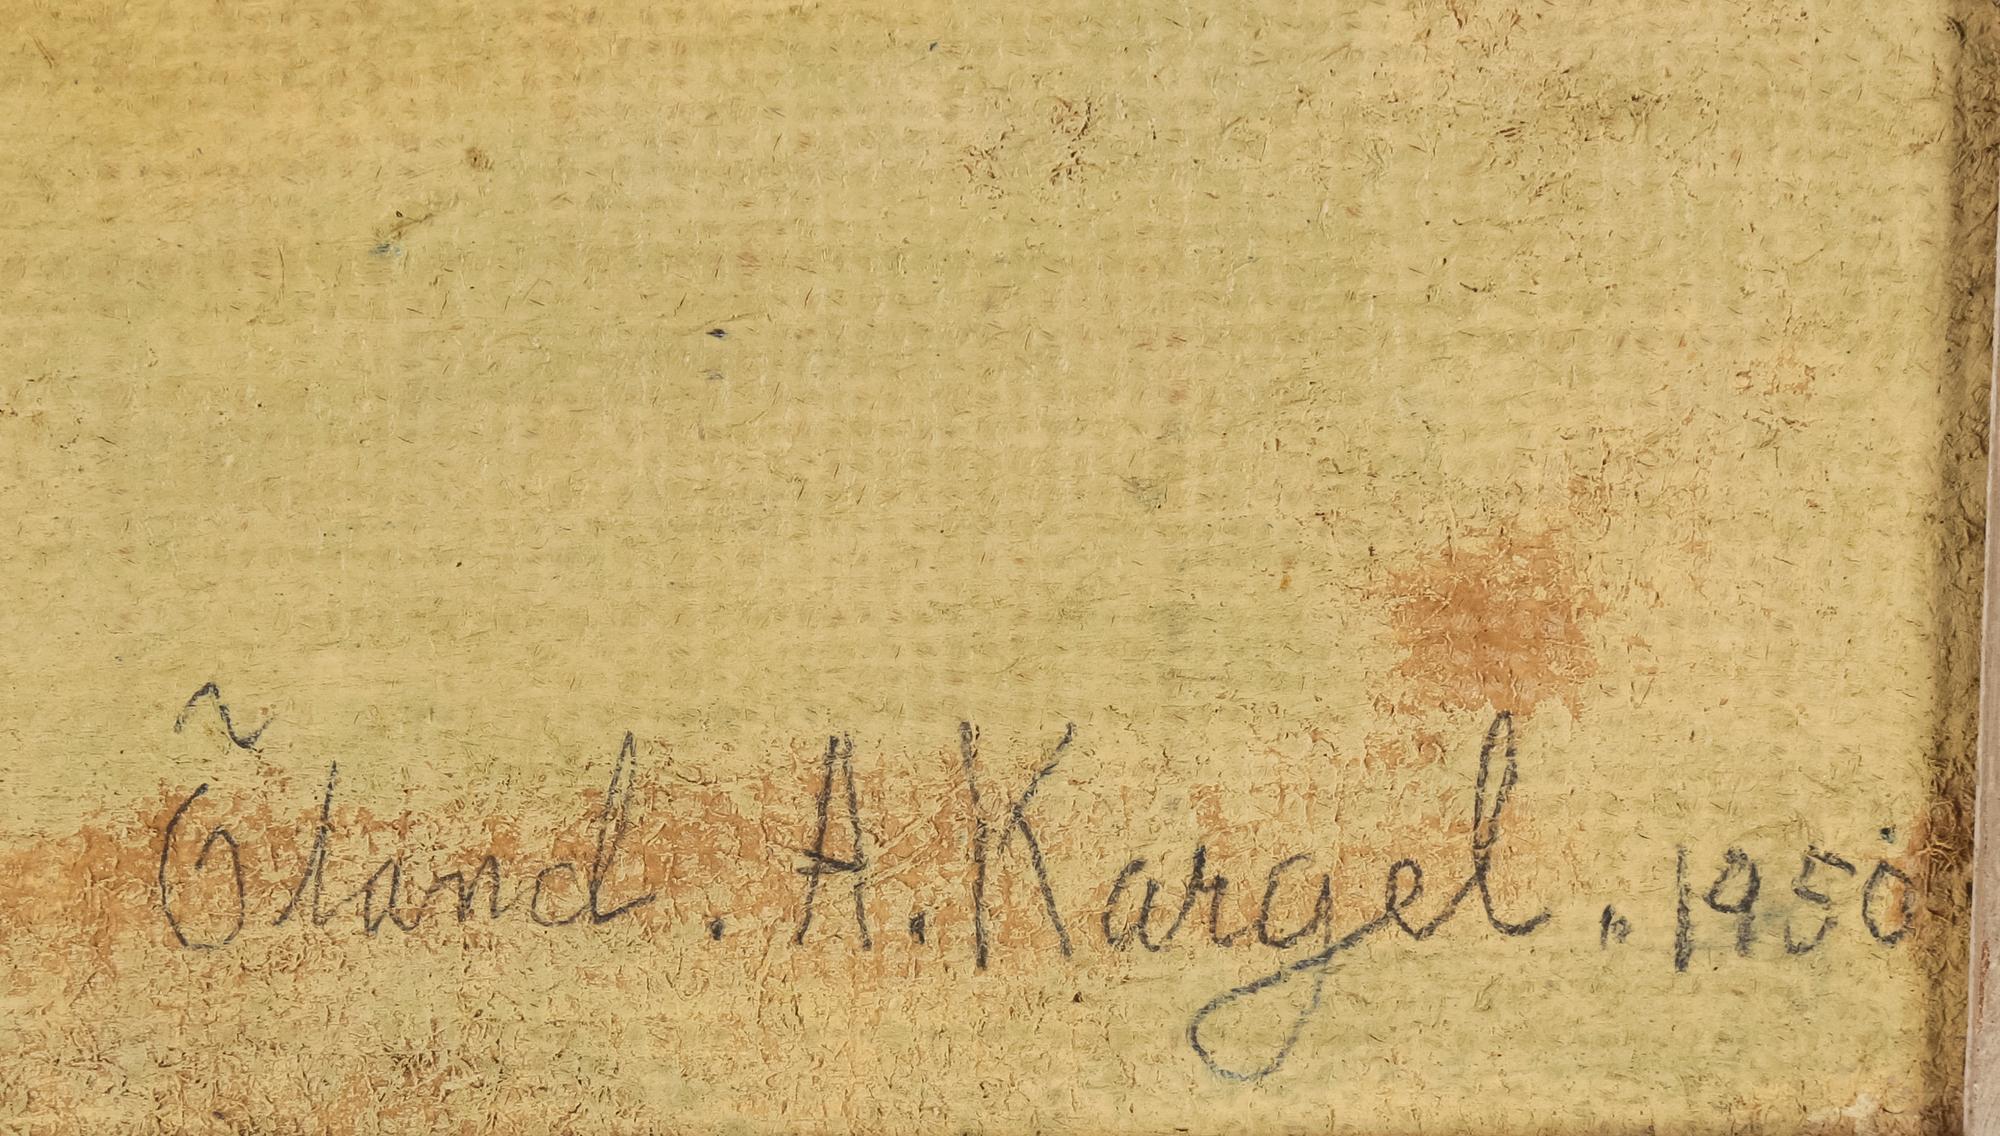 Öland. A. Kargel. 1950